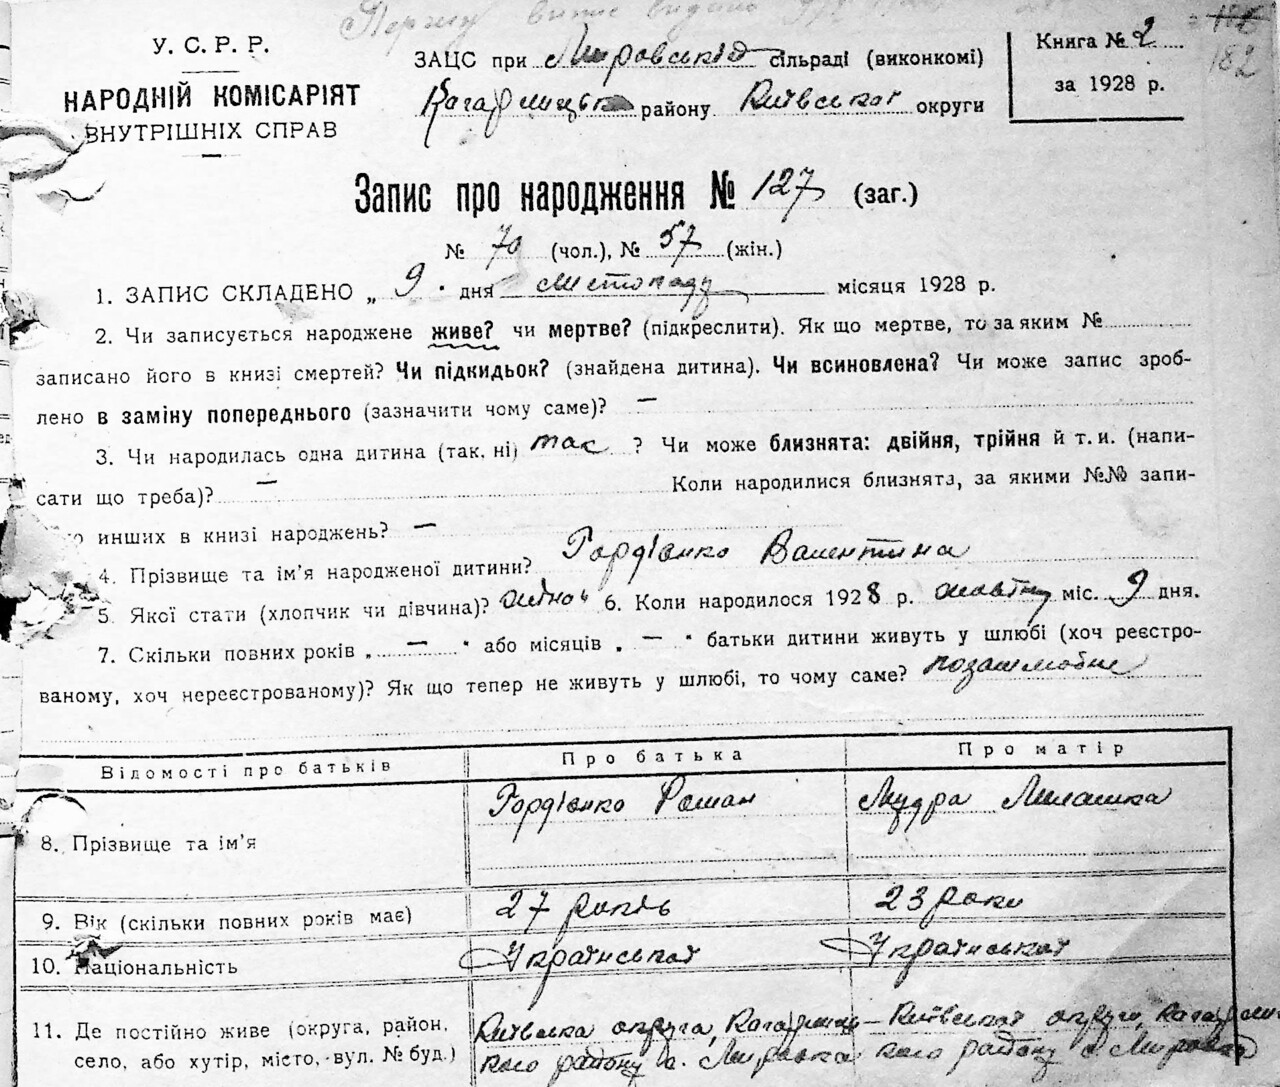 Першу випис видано
182
У. С. Р. Р.
НАРОДНІЙ КОМІСАРІЯТ
ВНУТРІШНІХ СПРАВ
ЗАЦС при Мировській сільраді (виконкомі)
Кагарлицьк району Київської округи
Книга № 2
за 1928 р.
Запис про народження № 127 (заг.)
№ 70 (чол.), № 57 (жін.)
1. ЗАПИС СКЛАДЕНО „ 9 " дня листопаду місяця 1928 р.
2. Чи записується народжене живе? чи мертве? (підкреслити). Як що мертве, то за яким №
записано його в книзі смертей? Чи підкидьок? (знайдена дитина). Чи всиновлена? Чи може запис зроб-
лено в заміну попереднього (зазначити чому саме)? —
3. Чи народилась одна дитина (так, ні) так ? Чи може близнята: двійня, трійня й т. и. (напи-
сати що треба)? — Коли народилися близнята, за якими №№ запи-
инших в книзі народжень? —
4. Прізвище та ім'я народженої дитини? Гордієнко Валентина
5. Якої стати (хлопчик чи дівчина)? 6. Коли народилося 1928 р. жовтня міс. 9 дня.
7. Скільки повних років „ — " або місяців „ — " батьки дитини живуть у шлюбі (хоч реєстро-
ваному, хоч нереєстрованому)? Як що тепер не живуть у шлюбі, то чому саме? позашлюбне
Відомості про батьків Про батька Про матір
8. Прізвище та ім'я Гордієнко Роман Мудра Милашка
9. Вік (скільки повних років має) 27 років 23 роки
10. Національність Української Української
11. Де постійно живе (округа, район, Київська округа, Кагарлиц- Київської округи, Кагарлиц-
село, або хутір, місто, вул. № буд.) кого району с. Мировка кого району с. Мировка